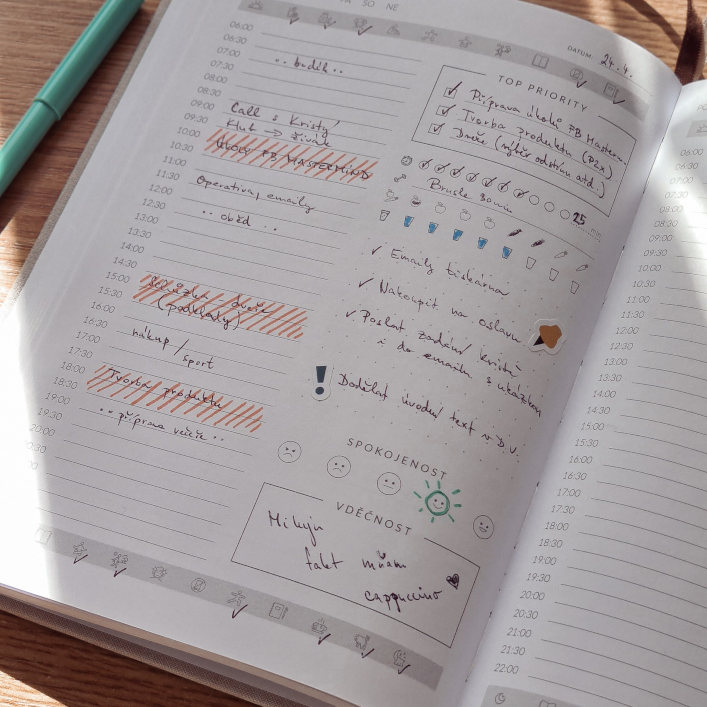 SO NE
DATUM: 24.4.
06:00
06:30
07:00
07:30 .. budík ..
08:00
08:30
09:00 Call s Kristý
09:30 Klub → živák
10:00 ÚKOLY FB MASTERMIND
10:30
11:00
11:30 Operativa, emaily
12:00
12:30 .. oběd ..
13:00
13:30
14:00
14:30
15:00
15:30 (podklady)
16:00
16:30
17:00 nákup / sport
17:30
18:00 Tvorba produktu
18:30
19:00
19:30 .. příprava večeře ..
20:00
0:30
TOP PRIORITY
Příprava úkolů FB Masterm.
Tvorba produktu (D2x)
atd.)
Brusle 30 min
25 min
Emaily tiskárna
Nakoupit na oslavu
Poslat zadání Kristý
i do emailu s ukázkou
Dodělat úvodní text v D.V.
SPOKOJENOST
VDĚČNOST
Miluju
fakt mňam
cappuccino
06:00
06:30
07:00
07:30
08:00
08:30
09:00
09:30
10:00
10:30
11:00
11:30
12:00
12:30
13:00
13:30
14:00
14:30
15:00
15:30
16:00
16:30
17:00
17:30
18:00
18:30
19:00
19:30
20:00
20:30
21:00
21:30
22:00